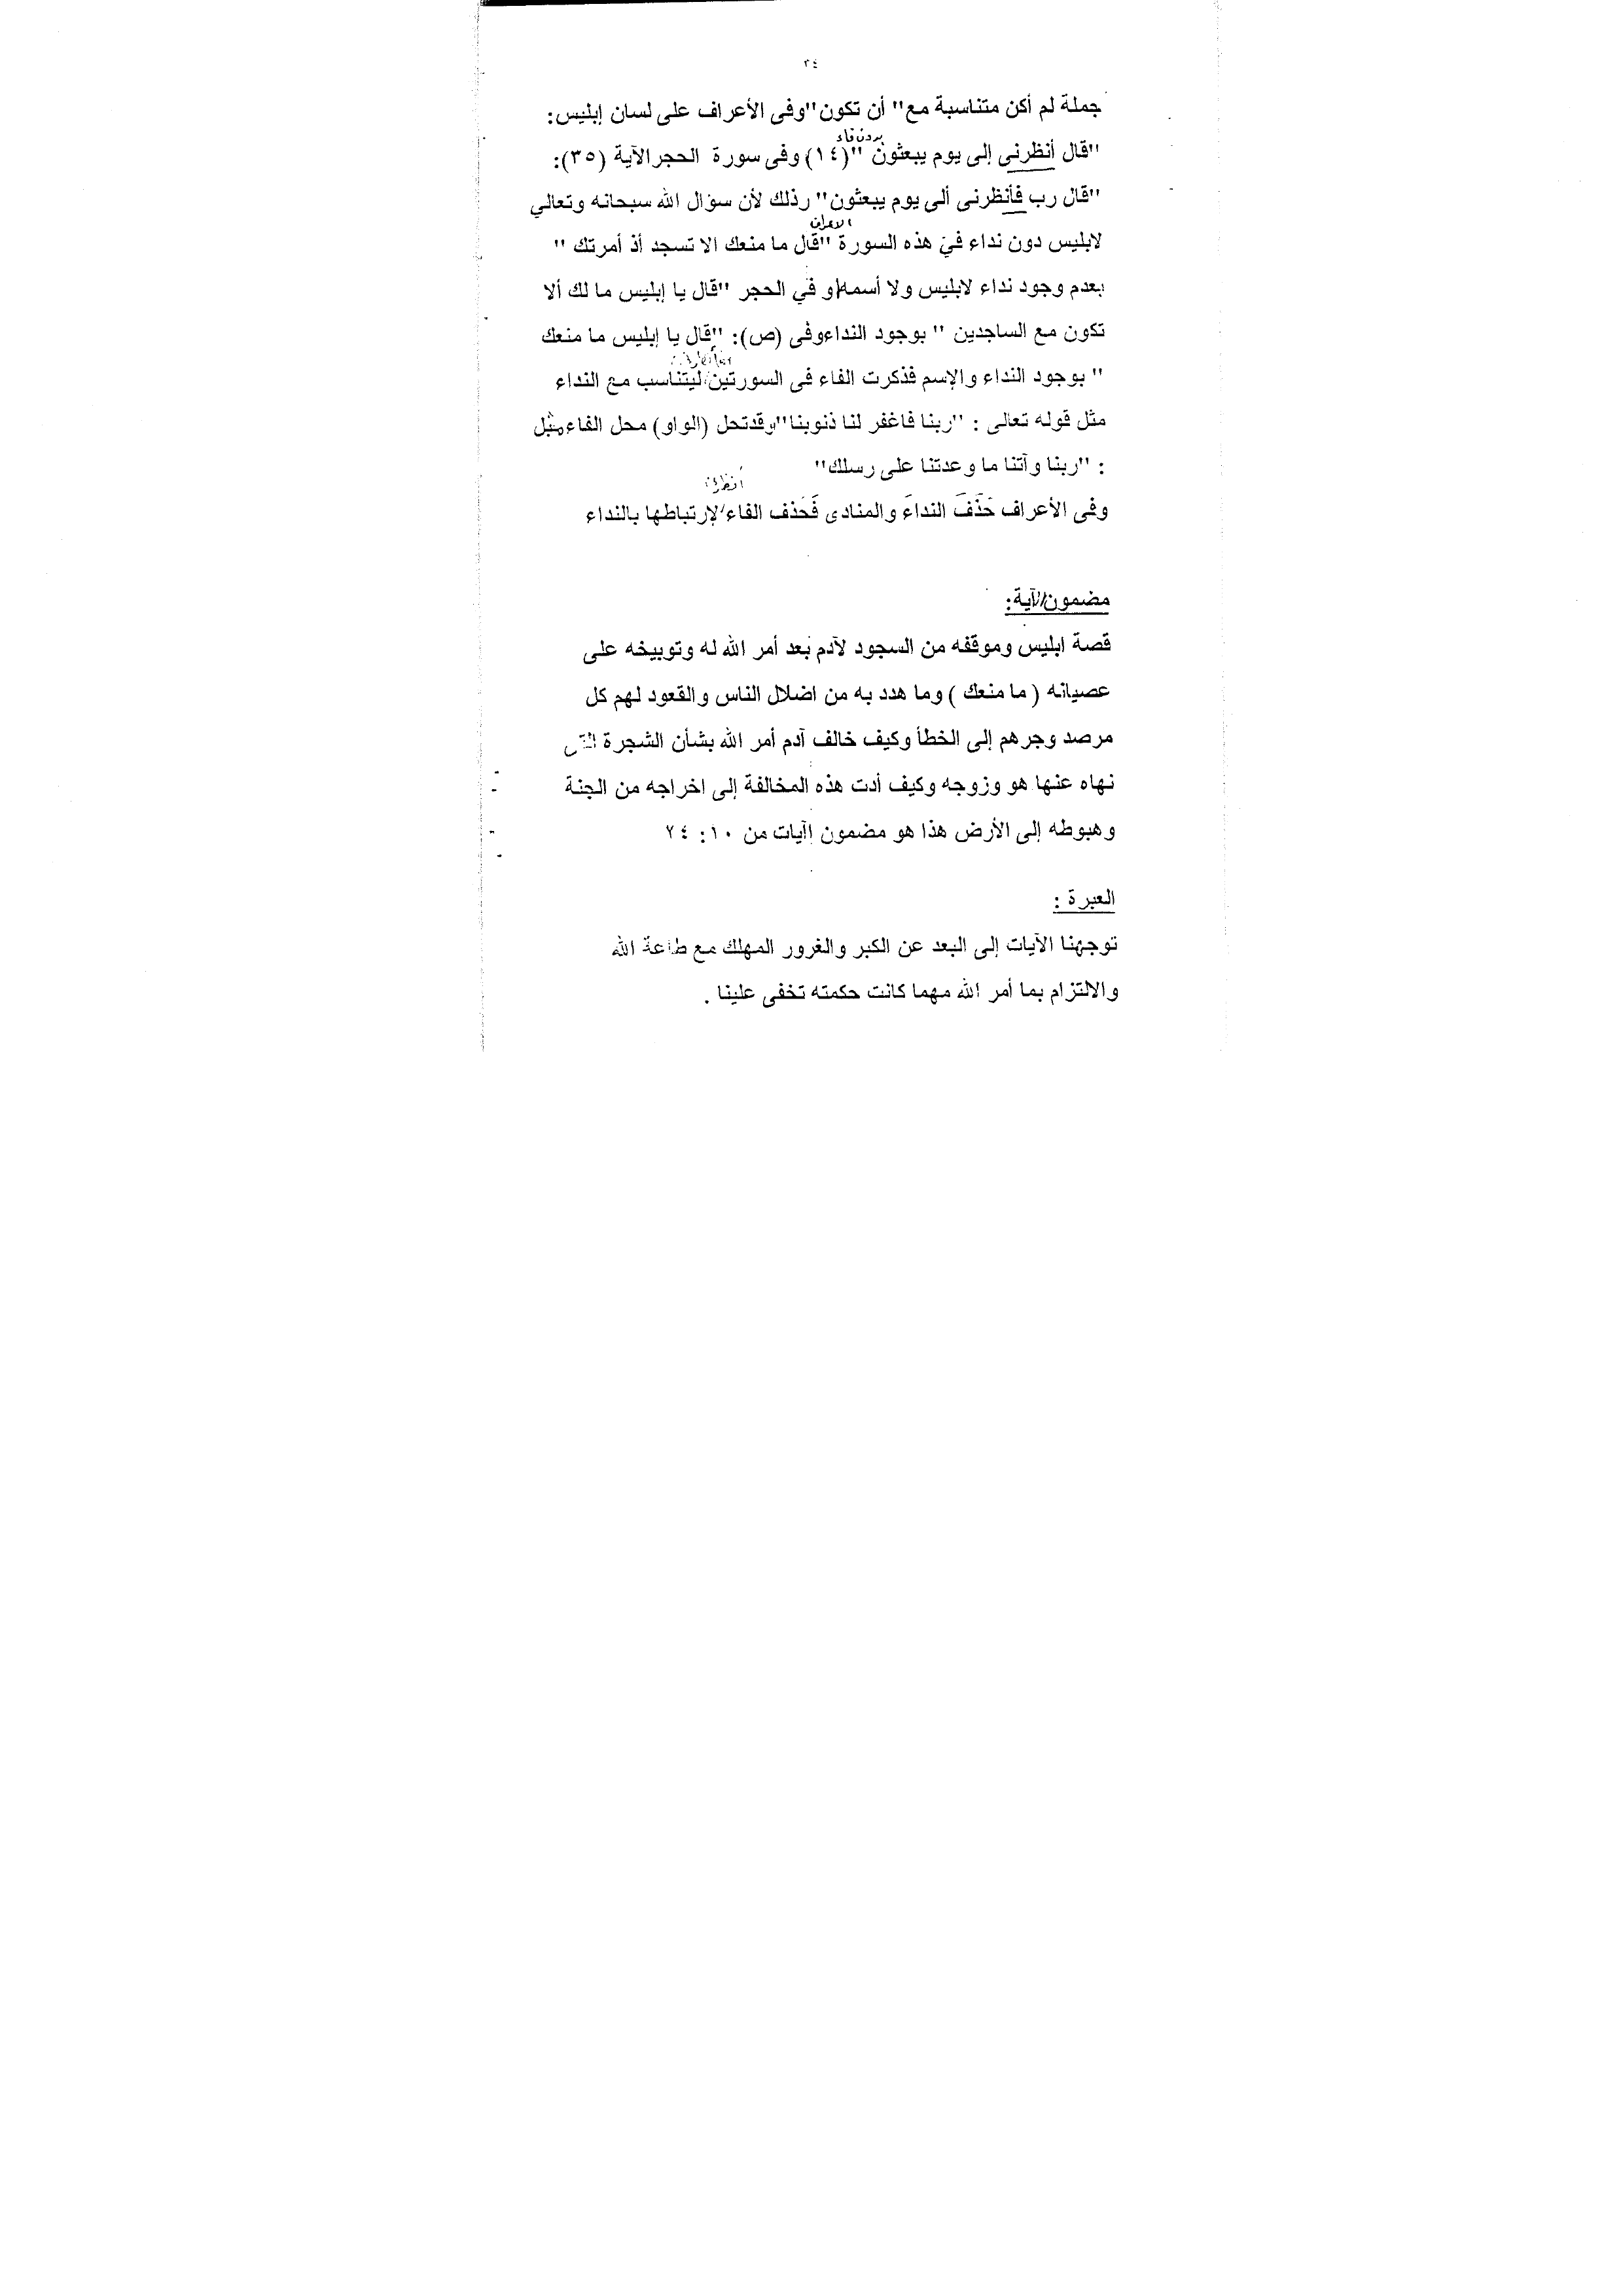 ٣٤
جملة لم أكن متناسبة مع" أن تكون"وفى الأعراف على لسان إبليس:
بدون فاء
"قال أنظرنى إلى يوم يبعثون "(١٤) وفى سورة الحجرالآية (٣٥):
"قال رب فأنظرنى ألى يوم يبعثون" رذلك لأن سؤال الله سبحانه وتعالي
الاعراف
لابليس دون نداء في هذه السورة "قال ما منعك الا تسجد أذ أمرتك "
بعدم وجود نداء لابليس ولا أسمه او في الحجر "قال يا إبليس ما لك ألا
تكون مع الساجدين " بوجود النداءوفى (ص): "قال يا إبليس ما منعك
فأنظرنى
" بوجود النداء والإسم فذكرت الفاء فى السورتين ليتناسب مع النداء
مثل قوله تعالى : "ربنا فاغفر لنا ذنوبنا"وقدتحل (الواو) محل الفاء مثل
: "ربنا وآتنا ما وعدتنا على رسلك"
أنظرنى
وفى الأعراف حَذَفَ النداءَ والمنادى فَحَذف الفاء لإرتباطها بالنداء
مضمون الآية:
قصة ابليس وموقفه من السجود لآدم بعد أمر الله له وتوبيخه على
عصيانه ( ما منعك ) وما هدد به من اضلال الناس والقعود لهم كل
مرصد وجرهم إلى الخطأ وكيف خالف آدم أمر الله بشأن الشجرة التى
نهاه عنها هو وزوجه وكيف أدت هذه المخالفة إلى اخراجه من الجنة
وهبوطه إلى الأرض هذا هو مضمون اآيات من ١٠: ٢٤
العبرة :
توجهنا الآيات إلى البعد عن الكبر والغرور المهلك مع طاعة الله
والالتزام بما أمر الله مهما كانت حكمته تخفى علينا .